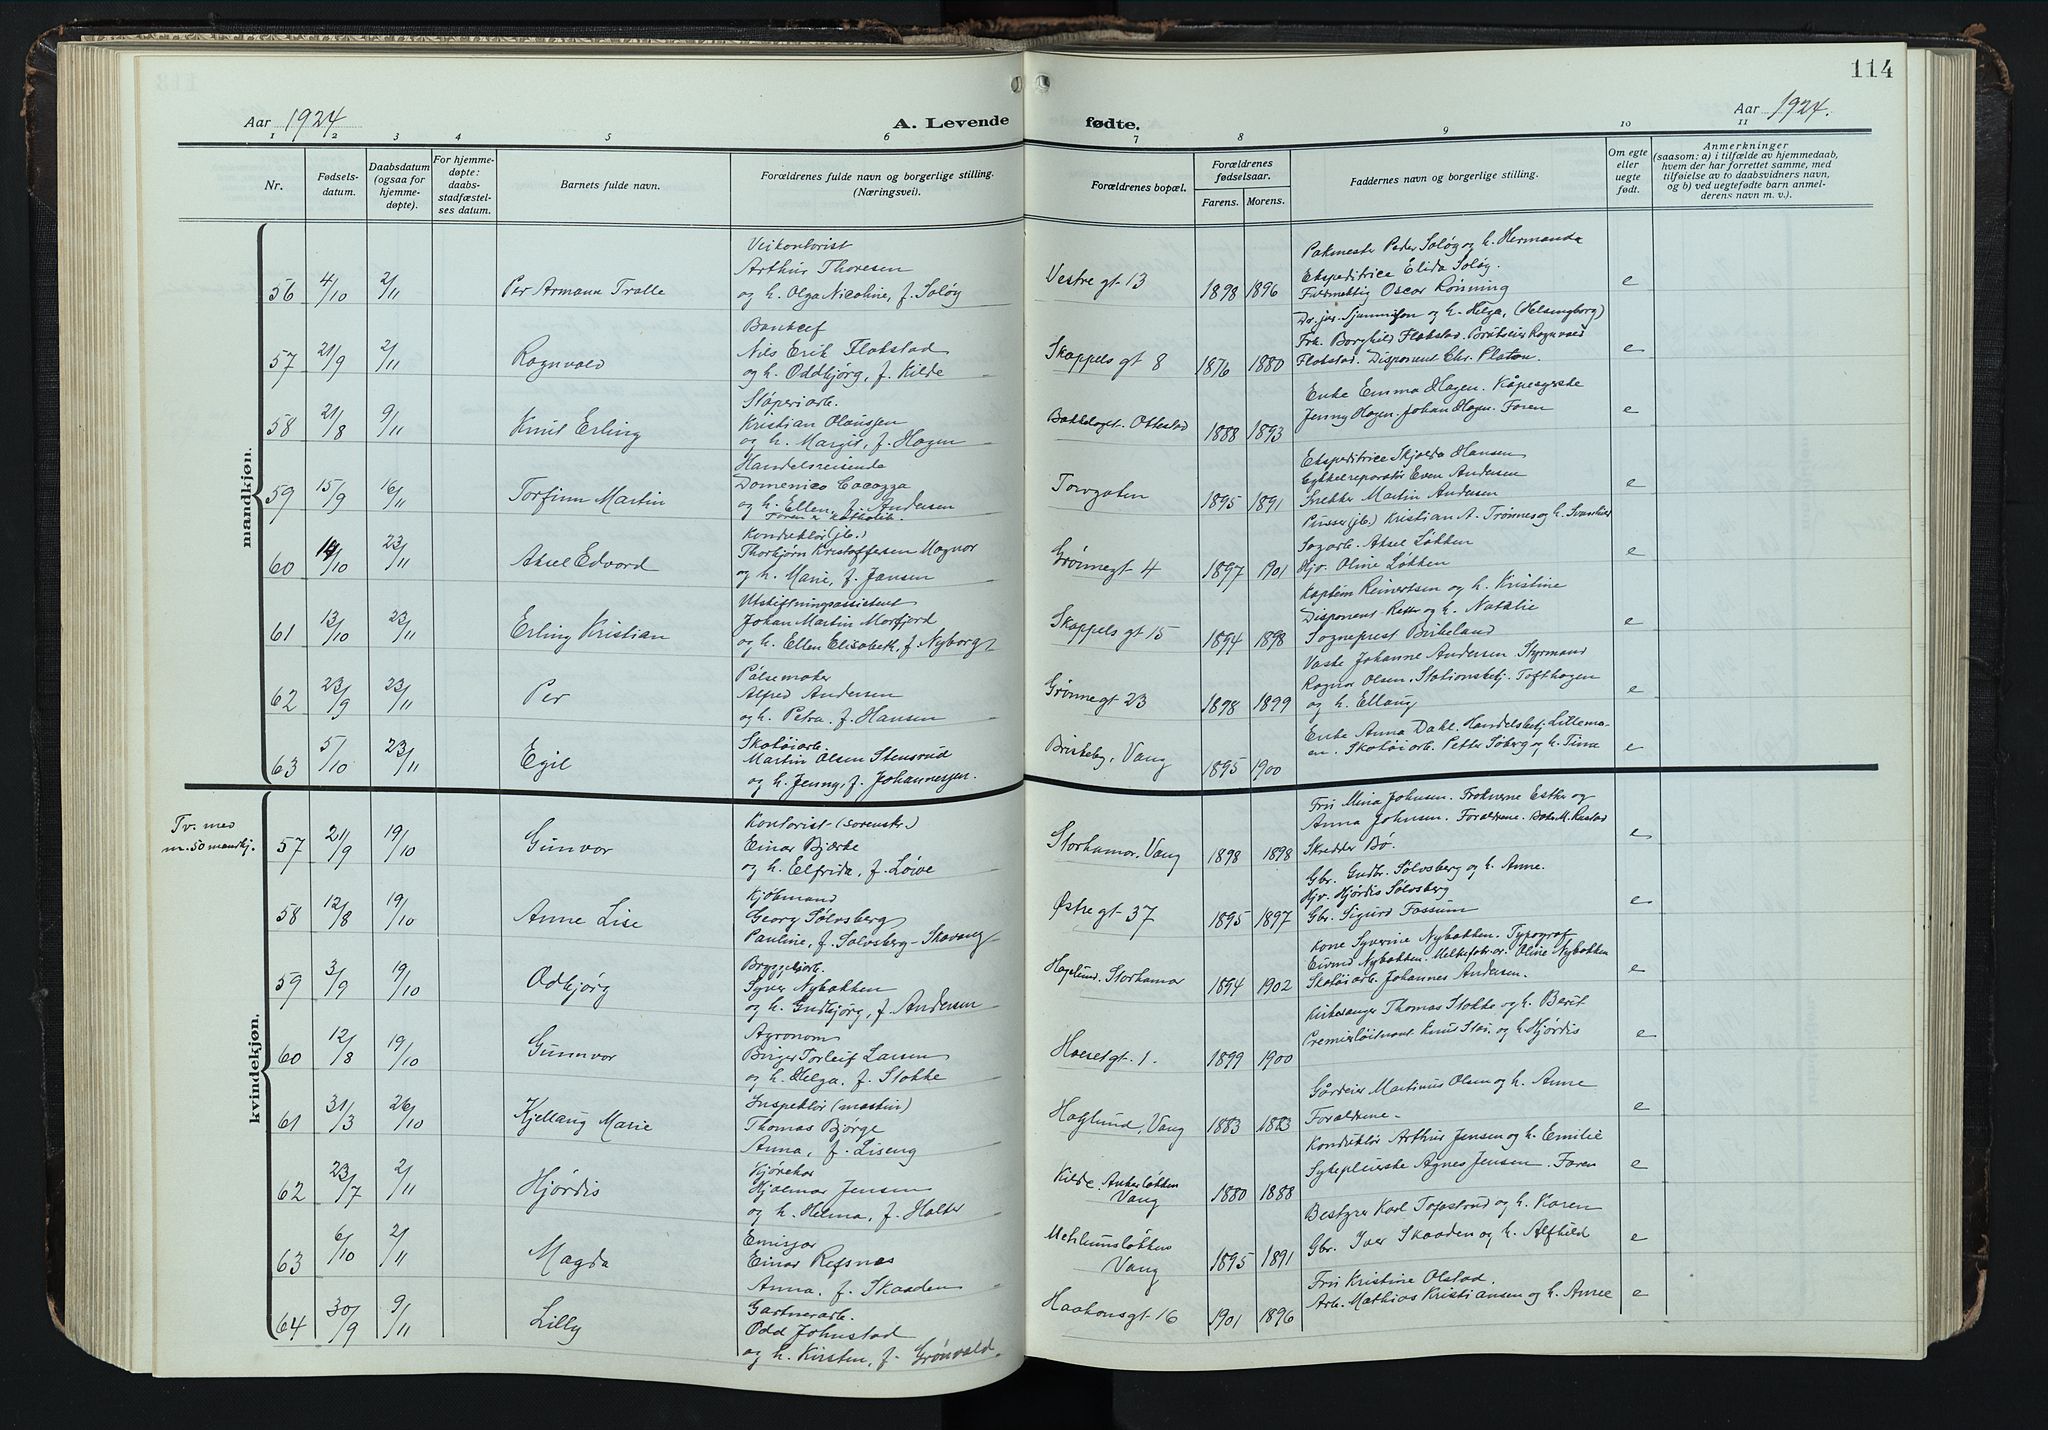 114
Aar 1924
A. Levende fødte.
Aar 1924.
1 2 3 4 5 6 7 8 9 10 11
Nr.
Fødsels-
datum.
Daabsdatum
(ogsaa for
hjemme-
døpte).
For hjemme-
døpte:
daabs-
stadfæstel-
ses datum.
Barnets fulde navn.
Forældrenes fulde navn og borgerlige stilling.
(Næringsvei).
Forældrenes bopæl.
Forældrenes
fødselsaar.
Farens. Morens.
Faddernes navn og borgerlige stilling.
Om egte
eller
uegte
født.
Anmerkninger
(saasom: a) i tilfælde av hjemmedaab,
hvem der har forrettet samme, med
tilføielse av to daabsvidners navn,
og b) ved uegtefødte barn anmel-
derens navn m. v.).
mandkjøn.
56 4/10 2/11 Per Armann Tralle
Veikontorist
Arthur Thoresen
og h. Olga Nicoline, f. Soløy
Vestre gt 13 1898 1896
Pakmester Peder Soløy og h. Hermanda
Ekspeditrice Elida Soløy.
Fuldmektig Oscar Rønning
e
57 21/9 2/11 Ragnvald
Banksef
Nils Erik Flakstad
og h. Oddbjørg, f. Kilde
Skappels gt 8 1876 1880
Dr. jur. og h. Helga, (Helsingborg)
Frk. Borghild Flakstad. Brukseier Ragnvald
Flakstad. Disponent Chr. Platou.
e
58 21/8 9/11 Knut Erling
Støperiarb.
Kristian Olaussen
og h. Margit, f. Hagen
Bakkelaget. Ottestad 1888 1893
Enke Emma Hagen. Kåpesyerske
Jenny Hagen. Johan Hagen. Faren
e
59 15/9 16/11 Torfinn Martin
Handelsreisende
Domenico Cocozza
og h. Ellen, f. Andersen
Faren er katholik.
Torvgaten 1895 1891
Ekspeditrice Skjolda Hansen
Cykkelreparatør Even Andersen
Snekker Martin Andersen
e
60 14/10 23/11 Aksel Edvard
Konduktør (jb.)
Thorbjørn Kristoffersen Magnor
og h. Marie, f. Jansen
Grønnegt 4 1897 1901
Pusser (jb.) Kristian A. Trønnes og h.
Sagarb. Aksel Løkken
Hjv. Oline Løkken
e
61 13/10 23/11 Erling Kristian
Utskiftningsassistent
Johan Martin Morfjord
og h. Ellen Elisabeth, f. Nyborg
Skappels gt 15 1894 1898
Kaptein Reinertsen og h. Kristine
Disponent Retter og h. Natalie
Sogneprest Birkeland
e
62 23/9 23/11 Per
Pølsemaker
Alfred Andersen
og h. Petra. f. Hansen
Grønnegt 23 1898 1899
Vaske Johanne Andersen Styrmand
Ragnar Olsen. Stationsbetj. Tofthagen
og h. Ellaug
e
63 5/10 23/11 Egil
Skotøiarb.
Martin Olsen Stensrud
og h. Jenny, f. Johannessen.
Briskeby, Vang 1895 1900
Enke Anna Dahl. Handelsbetj. Lillemo-
en. Skotøiarb. Petter Søberg og h. Tina
e
kvindekjøn.
Tv. med
m. 50 mandkj.
57 21/9 19/10 Gunvor
Kontorist (sorenskr.)
Einar Bjerke
og h. Elfrida, f. Løwe
Storhamar, Vang 1898 1898
Fru Mina Johnsen. Frøknerne Esther og
Anna Johnsen. Forældrene.
Skredder Bø.
e
58 12/8 19/10 Anne Lise
Kjøbmand
Georg Sølvsberg
Pauline, f. Sølvsberg-Skavang
Østre gt 37 1895 1897
Gbr. Gudbr. Sølvsberg og h. Anne.
Hjv. Hjørdis Sølvsberg
Gbr. Sigurd Fossum
e
59 3/9 19/10 Odbjørg
Bryggeriarb.
Syver Nybakken
og h. Gudbjørg, f. Andersen
Haglund. Storhamar 1894 1902
Kone Syverine Nybakken. Typograf
Eivind Nybakken. Oline Nybakken
Skotøiarb. Johannes Andersen.
e
60 12/8 19/10 Gunnvor
Agronom
Birger Torleif Larsen
og h. Helga. f. Stokke
Horselgt. 1. 1899 1900
Kirkesanger Thomas Stokke og h. Berit
Premierløitnant Knut og h. Hjørdis
e
61 31/3 26/10 Kjellaug Marie
Inspektør (martin)
Thomas Bjørge
Anna, f. Liseng
Haglund, Vang 1883 1883
Gårdeier Martinus Olsen og h. Anne
Forældrene.
e
62 23/7 2/11 Hjørdis
Kjørekar
Hjalmar Jensen
og h. Helma, f. Halter
Kilde. Ankerløkken
Vang 1880 1888
Konduktør Arthur Jensen og h. Emilie
Sykepleierske Agnes Jensen. Faren
e
63 6/10 2/11 Magda
Emisær
Einar Refsnes
Anna. f. Skaaden
Mehlumsløkken
Vang 1895 1891
Bestyrer Karl Tofastrud og h. Karen
Gbr. Iver Skaaden og h. Alfhild
e
64 30/9 9/11 Lilly
Gartnerarb.
Odd Johnstad
og h. Kirsten, f. Grønvald.
Haakonsgt 16 1901 1896
Fru Kristine Olstad.
Arb. Mathias Kristiansen og h. Anne
e